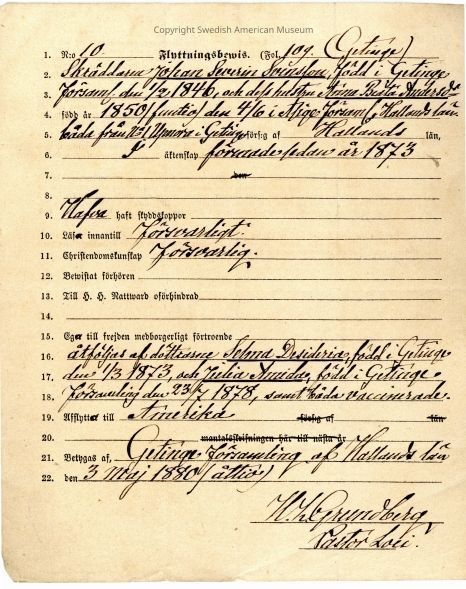 Copyright Swedish American Museum
1. N:o 10. Flyttningsbewis. (Fol. 109. Getinge)
2. Skräddaren Johan Severin Svensson, född i Getinge
3. Församl. den 1/2 1846, och dess hustru Anna
4. född år 1850 (femtio) den 4/6 i Församl., Hallands län
5. båda från N:o 1 i Geting församl. af Hallands län,
6. I äktenskap förenade sedan år 1873
7. den
8.
9. Hafva haft skyddskoppor
10. Läsa innantill försvarligt.
11. Christendomskunskap försvarlig.
12. Bewistat förhören
13. Till H. H. Nattward oförhindrad
14.
15. Ega till frejden medborgerligt förtroende
16. åtföljas af döttrarne Selma Desideria, född i Getinge
17. den 1/3 1873 och Julia Amida, född i Getinge
18. Församling den 23/7 1878, samt båda vaccinerade.
19. Afflytta till Amerika församl. af län
20. mantalsskrifningen här till nästa år
21. Betygas af, Getinge Församling af Hallands län
22. den 3 Maj 1880 (åttio)
Grundberg,
Pastor Loci.